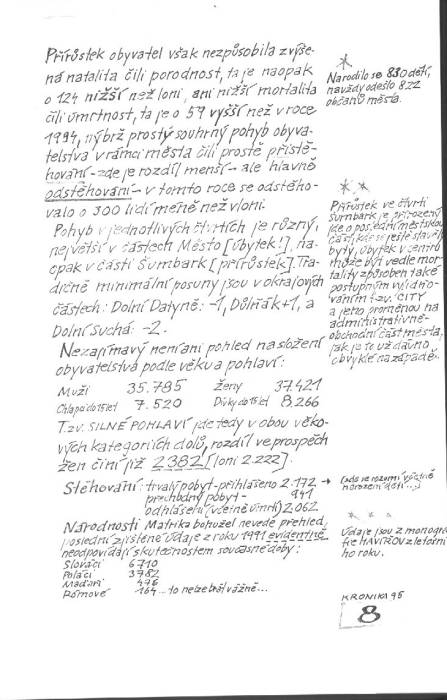 Přírůstek obyvatel však nezpůsobila zvýše-
ná natalita čili porodnost, ta je naopak
o 124 nižší než loni, ani nižší mortalita
čili úmrtnost, ta je o 59 vyšší než v roce
1994, nýbrž prostý souhrný pohyb obyva-
telstva v rámci města čili prostě přistě-
hování - zde je rozdíl menší - ale hlavně
odstěhování - v tomto roce se odstěho-
valo o 300 lidí méně než vloni.
Pohyb v jednotlivých čtvrtích je různý,
největší v částech Město [úbytek!], na-
opak v části Šumbark [přírůstek]. Tra-
dičně minimální posuny jsou v okrajových
částech: Dolní Datyně: -1, Důlňák +1, a
Dolní Suchá: -2.
Nezajímavý není ani pohled na složení
obyvatelstva podle věku a pohlaví:
Muži 35.785 Ženy 37.421
Chlapci do 15 let 7.520 Dívky do 15 let 8.266
T.zv. SILNÉ POHLAVÍ jde tedy v obou věko-
vých kategoriích dolů, rozdíl ve prospěch
žen činí již 2382 [loni 2.222].
Stěhování: trvalý pobyt - přihlášeno 2.172 →
přechodný pobyt - 941
odhlášení (včetně úmrtí) 2.062
Národnosti Matrika bohužel nevede přehled,
poslední zjištěné údaje z roku 1991 evidentně
neodpovídají skutečnostem současné doby:
Slováci 6710
Poláci 3782
Maďaři 476
Rómové 164 ... to nelze brát vážně...
*
Narodilo se 830 dětí,
navždy odešlo 822
občanů města.
* *
Přírůstek ve čtvrti
Šumbark je přirozený
jde o poslední městskou
část, kde se ještě stavějí
byty, úbytek v centru
může být vedle mor-
tality způsoben také
postupným vylidňo-
váním t.zv. CITY
a jeho proměnou na
administrativně-
obchodní část města,
jak je to už dávno
obvyklé na západě.
(zde se rozumí včetně
narození dětí...)
* * *
Údaje jsou z monogra-
fie HAVÍŘOV z letošní-
ho roku.
KRONIKA 95
8